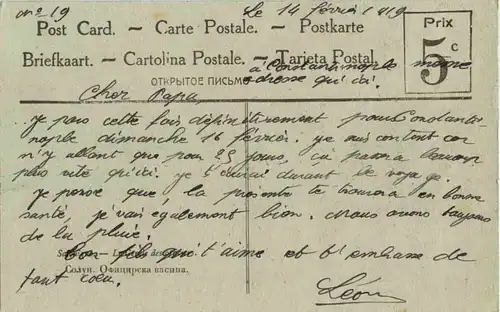 N° 19
Le 14 février 1919
Post Card. — Carte Postale. — Postkarte
Briefkaart. — Cartolina Postale. — Tarjeta Postal.
ОТКРЫТОЕ ПИСЬМО
Prix
5 c
à Constantinople même
adresse qu'ici.
Cher Papa,
Je pars cette fois définitivement pour Constanti-
nople dimanche 16 février. Je suis content car
n'y allant que pour 25 jours, ça passera beaucoup
plus vite qu'ici. Je t'écrirai durant le voyage.
Je pense que la présente te trouvera en bonne
santé, je vais également bien. Nous avons toujours
de la pluie.
Ton fils qui t'aime et t'embrasse de
Солун. Официрска касина.
tout coeur.
Léon